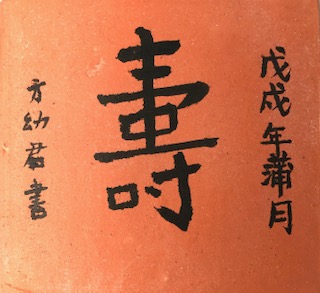 戊戌年蒲月
壽
方幼君書